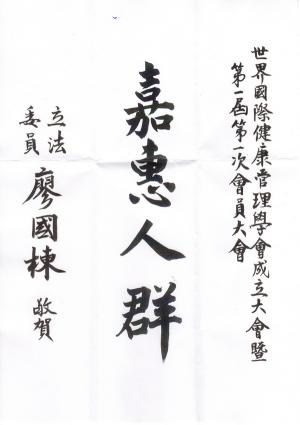 世界國際健康管理學會成立大會暨
第一屆第一次會員大會
嘉惠人群
立法
委員
廖國棟
敬賀